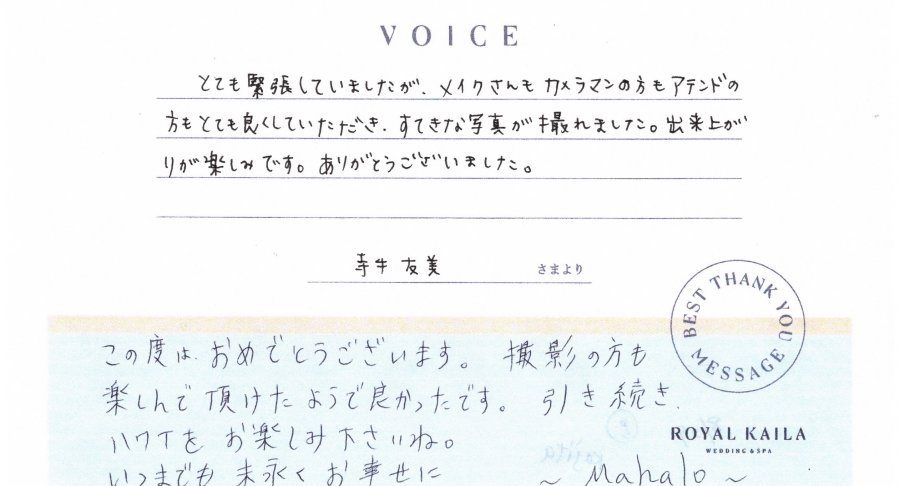 VOICE
とても緊張していましたが、メイクさんもカメラマンの方もアテンドの
方もとても良くしていただき、すてきな写真が撮れました。出来上が
りが楽しみです。ありがとうございました。
寺牛 友美 さまより
BEST THANK YOU MESSAGE
この度は、おめでとうございます。 撮影の方も
楽しんで頂けたようで良かったです。 引き続き、
ハワイを お楽しみ下さいね。
ROYAL KAILA
WEDDING & SPA
いつまでも 末永く お幸せに
~ Mahalo ~